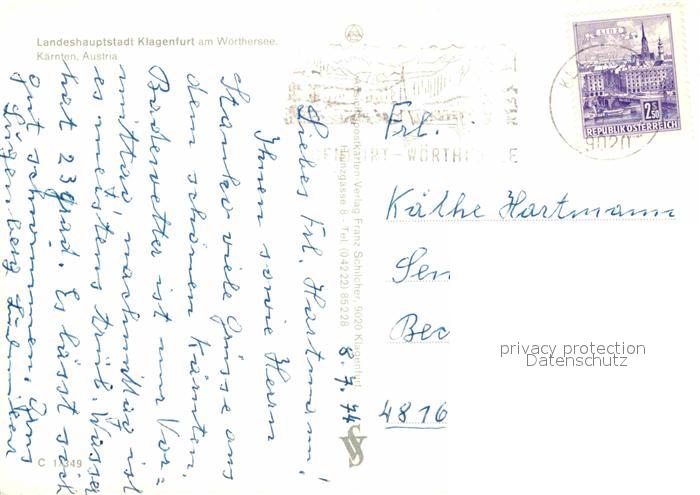 Landeshauptstadt Klagenfurt am Wörthersee.
Kärnten, Austria
LINZ
2.50
REPUBLIK ÖSTERREICH
9020
FURT-WÖRTH
Postkarten-Verlag Franz Schilcher, 9020 Klagenfurt
gasse 8 - Tel. (04222) 85228
8.7.74
Liebes Frl. Hartmann!
Ihnen sowie Herrn
Stanko viele Grüsse aus
dem schönen Kärnten.
Badewetter ist nur Vor=
mittag nachmittag ist
es meistens trüb. Wasser
hat 23 grad. Es lässt sich
gut schwimmen.
Frl.
Käthe Hartmann
Sen
Bec
4816
privacy protection
Datenschutz
C 1/349